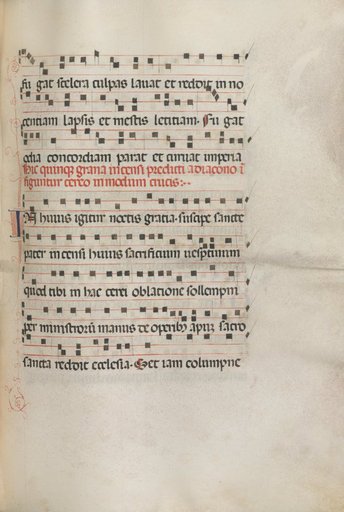 fu gat scelera culpas lavat et reddit in no
centiam lapsis et mestis letitiam. Fu gat
odia concordiam parat et curvat imperia
Hic quinque grana incensi predicti a diacono
figuntur cereo in modum crucis:
In huius igitur noctis gratia suscipe sancte
pater incensi huius sacrificium vespertinum
quod tibi in hac cerei oblatione sollempni
per ministrorum manus de operibus apum sacro
sancta reddit ecclesia. Set iam columpne